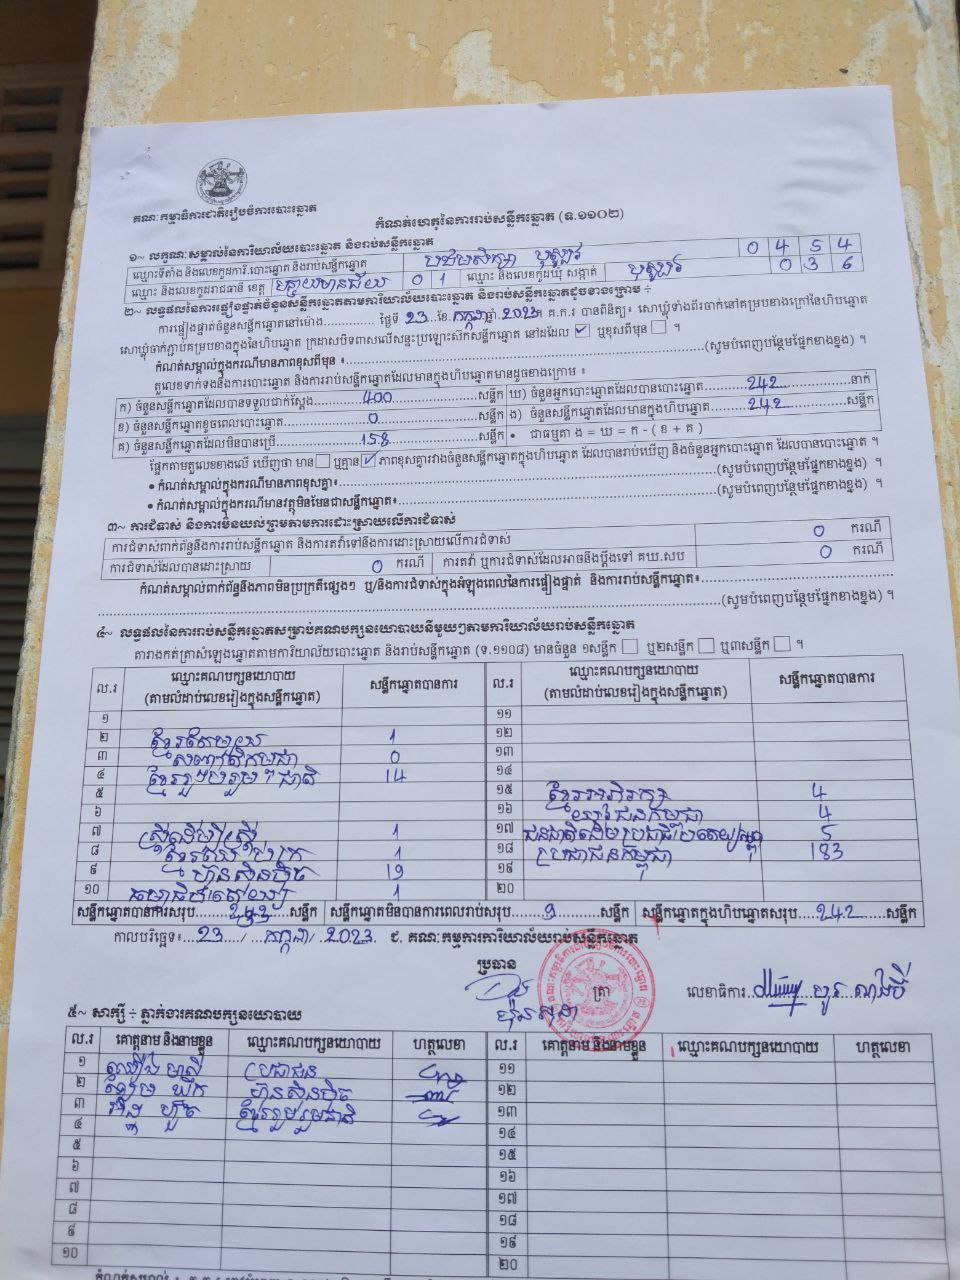 គណៈកម្មាធិការជាតិរៀបចំការបោះឆ្នោត
កំណត់ហេតុនៃការរាប់សន្លឹកឆ្នោត (ទ.១១០២)
១~ លក្ខណៈសម្គាល់នៃការិយាល័យបោះឆ្នោត និងរាប់សន្លឹកឆ្នោត
ឈ្មោះទីតាំង និងលេខកូដការិ.បោះឆ្នោត និងរាប់សន្លឹកឆ្នោត បឋមសិក្សា ឫស្សីក្រោ 0 4 5 4
ឈ្មោះ និងលេខកូដរាជធានី ខេត្ត បន្ទាយមានជ័យ 0 1 ឈ្មោះ និងលេខកូដឃុំ សង្កាត់ 0 3 6
២~ លទ្ធផលនៃការផ្ទៀងផ្ទាត់ចំនួនសន្លឹកឆ្នោតតាមការិយាល័យបោះឆ្នោត និងរាប់សន្លឹកឆ្នោតដូចខាងក្រោម ÷
ការផ្ទៀងផ្ទាត់ចំនួនសន្លឹកឆ្នោតនៅម៉ោង.............. ថ្ងៃទី 23 ខែ កក្កដា ឆ្នាំ 2023 ។ គ.ក.រ បានពិនិត្យ៖ សោឃ្លុំទាំងពីរចាក់នៅគម្របខាងក្រៅនៃហិបឆ្នោត
សោឃ្លុំចាក់ភ្ជាប់គម្របខាងក្នុងនៃហិបឆ្នោត ក្រដាសបិទពាសលើសន្ទះប្រឡោះស៊កសន្លឹកឆ្នោត នៅដដែល ✓ ឬខុសពីមុន ។
កំណត់សម្គាល់ក្នុងករណីមានភាពខុសពីមុន ៖ (សូមបំពេញបន្ថែមផ្នែកខាងខ្នង) ។
តួលេខទាក់ទងនឹងការបោះឆ្នោត និងការរាប់សន្លឹកឆ្នោតដែលមានក្នុងហិបឆ្នោតមានដូចខាងក្រោម ៖
ក) ចំនួនសន្លឹកឆ្នោតដែលបានទទួលជាក់ស្តែង 400 សន្លឹក ឃ) ចំនួនអ្នកបោះឆ្នោតដែលបានបោះឆ្នោត 242 នាក់
ខ) ចំនួនសន្លឹកឆ្នោតខូចពេលបោះឆ្នោត 0 សន្លឹក ង) ចំនួនសន្លឹកឆ្នោតដែលមានក្នុងហិបឆ្នោត 242 សន្លឹក
គ) ចំនួនសន្លឹកឆ្នោតដែលមិនបានប្រើ 158 សន្លឹក • ជាធម្មតា ង = ឃ = ក - ( ខ + គ )
ផ្អែកតាមតួលេខខាងលើ ឃើញថា មាន ឬគ្មាន ✓ ភាពខុសគ្នារវាងចំនួនសន្លឹកឆ្នោតក្នុងហិបឆ្នោត ដែលបានរាប់ឃើញ និងចំនួនអ្នកបោះឆ្នោត ដែលបានបោះឆ្នោត ។
• កំណត់សម្គាល់ក្នុងករណីមានភាពខុសគ្នា៖ (សូមបំពេញបន្ថែមផ្នែកខាងខ្នង) ។
• កំណត់សម្គាល់ក្នុងករណីមានវត្ថុមិនមែនជាសន្លឹកឆ្នោត៖ (សូមបំពេញបន្ថែមផ្នែកខាងខ្នង) ។
៣~ ការជំទាស់ និងការមិនយល់ព្រមតាមការដោះស្រាយលើការជំទាស់
ការជំទាស់ពាក់ព័ន្ធនឹងការរាប់សន្លឹកឆ្នោត និងការតវ៉ាទៅនឹងការដោះស្រាយលើការជំទាស់ 0 ករណី
ការជំទាស់ដែលបានដោះស្រាយ 0 ករណី ការតវ៉ា ឬការជំទាស់ដែលអាចនឹងប្តឹងទៅ គឃ.សប 0 ករណី
កំណត់សម្គាល់ពាក់ព័ន្ធនឹងភាពមិនប្រក្រតីផ្សេងៗ ឬ/និងការជំទាស់ក្នុងអំឡុងពេលនៃការផ្ទៀងផ្ទាត់ និងការរាប់សន្លឹកឆ្នោត៖
(សូមបំពេញបន្ថែមផ្នែកខាងខ្នង) ។
៤~ លទ្ធផលនៃការរាប់សន្លឹកឆ្នោតសម្រាប់គណបក្សនយោបាយនីមួយៗតាមការិយាល័យរាប់សន្លឹកឆ្នោត
តារាងកត់ត្រាសំឡេងឆ្នោតតាមការិយាល័យបោះឆ្នោត និងរាប់សន្លឹកឆ្នោត (ទ.១១០៨) មានចំនួន ១សន្លឹក ឬ២សន្លឹក ឬ៣សន្លឹក ។
ល.រ ឈ្មោះគណបក្សនយោបាយ (តាមលំដាប់លេខរៀងក្នុងសន្លឹកឆ្នោត) សន្លឹកឆ្នោតបានការ ល.រ ឈ្មោះគណបក្សនយោបាយ (តាមលំដាប់លេខរៀងក្នុងសន្លឹកឆ្នោត) សន្លឹកឆ្នោតបានការ
១ ១១
២ ខ្មែរតែមួយ 1 ១២
៣ 0 ១៣
៤ ខ្មែររួបរួមជាតិ 14 ១៤
៥ ១៥ ខ្មែរអភិរក្ស 4
៦ ១៦ 4
៧ ស្ត្រីដើម្បីស្ត្រី 1 ១៧ 5
៨ 1 ១៨ ប្រជាជនកម្ពុជា 183
៩ ហ៊្វុនស៊ិនប៉ិច 19 ១៩
១០ ធម្មាធិបតេយ្យ 1 ២០
សន្លឹកឆ្នោតបានការសរុប សន្លឹក សន្លឹកឆ្នោតមិនបានការពេលរាប់សរុប 9 សន្លឹក សន្លឹកឆ្នោតក្នុងហិបឆ្នោតសរុប 242 សន្លឹក
កាលបរិច្ឆេទ៖ 23 / កក្កដា / 2023. ជ. គណៈកម្មការការិយាល័យរាប់សន្លឹកឆ្នោត
ប្រធាន ត្រា លេខាធិការ
៥~ សាក្សី ÷ ភ្នាក់ងារគណបក្សនយោបាយ
ល.រ គោត្តនាម និងនាមខ្លួន ឈ្មោះគណបក្សនយោបាយ ហត្ថលេខា ល.រ គោត្តនាម និងនាមខ្លួន ឈ្មោះគណបក្សនយោបាយ ហត្ថលេខា
១ ប្រជាជន ១១
២ ហ៊្វុនស៊ិនប៉ិច ១២
៣ ខ្មែររួបរួមជាតិ ១៣
៤ ១៤
៥ ១៥
៦ ១៦
៧ ១៧
៨ ១៨
៩ ១៩
១០ ២០